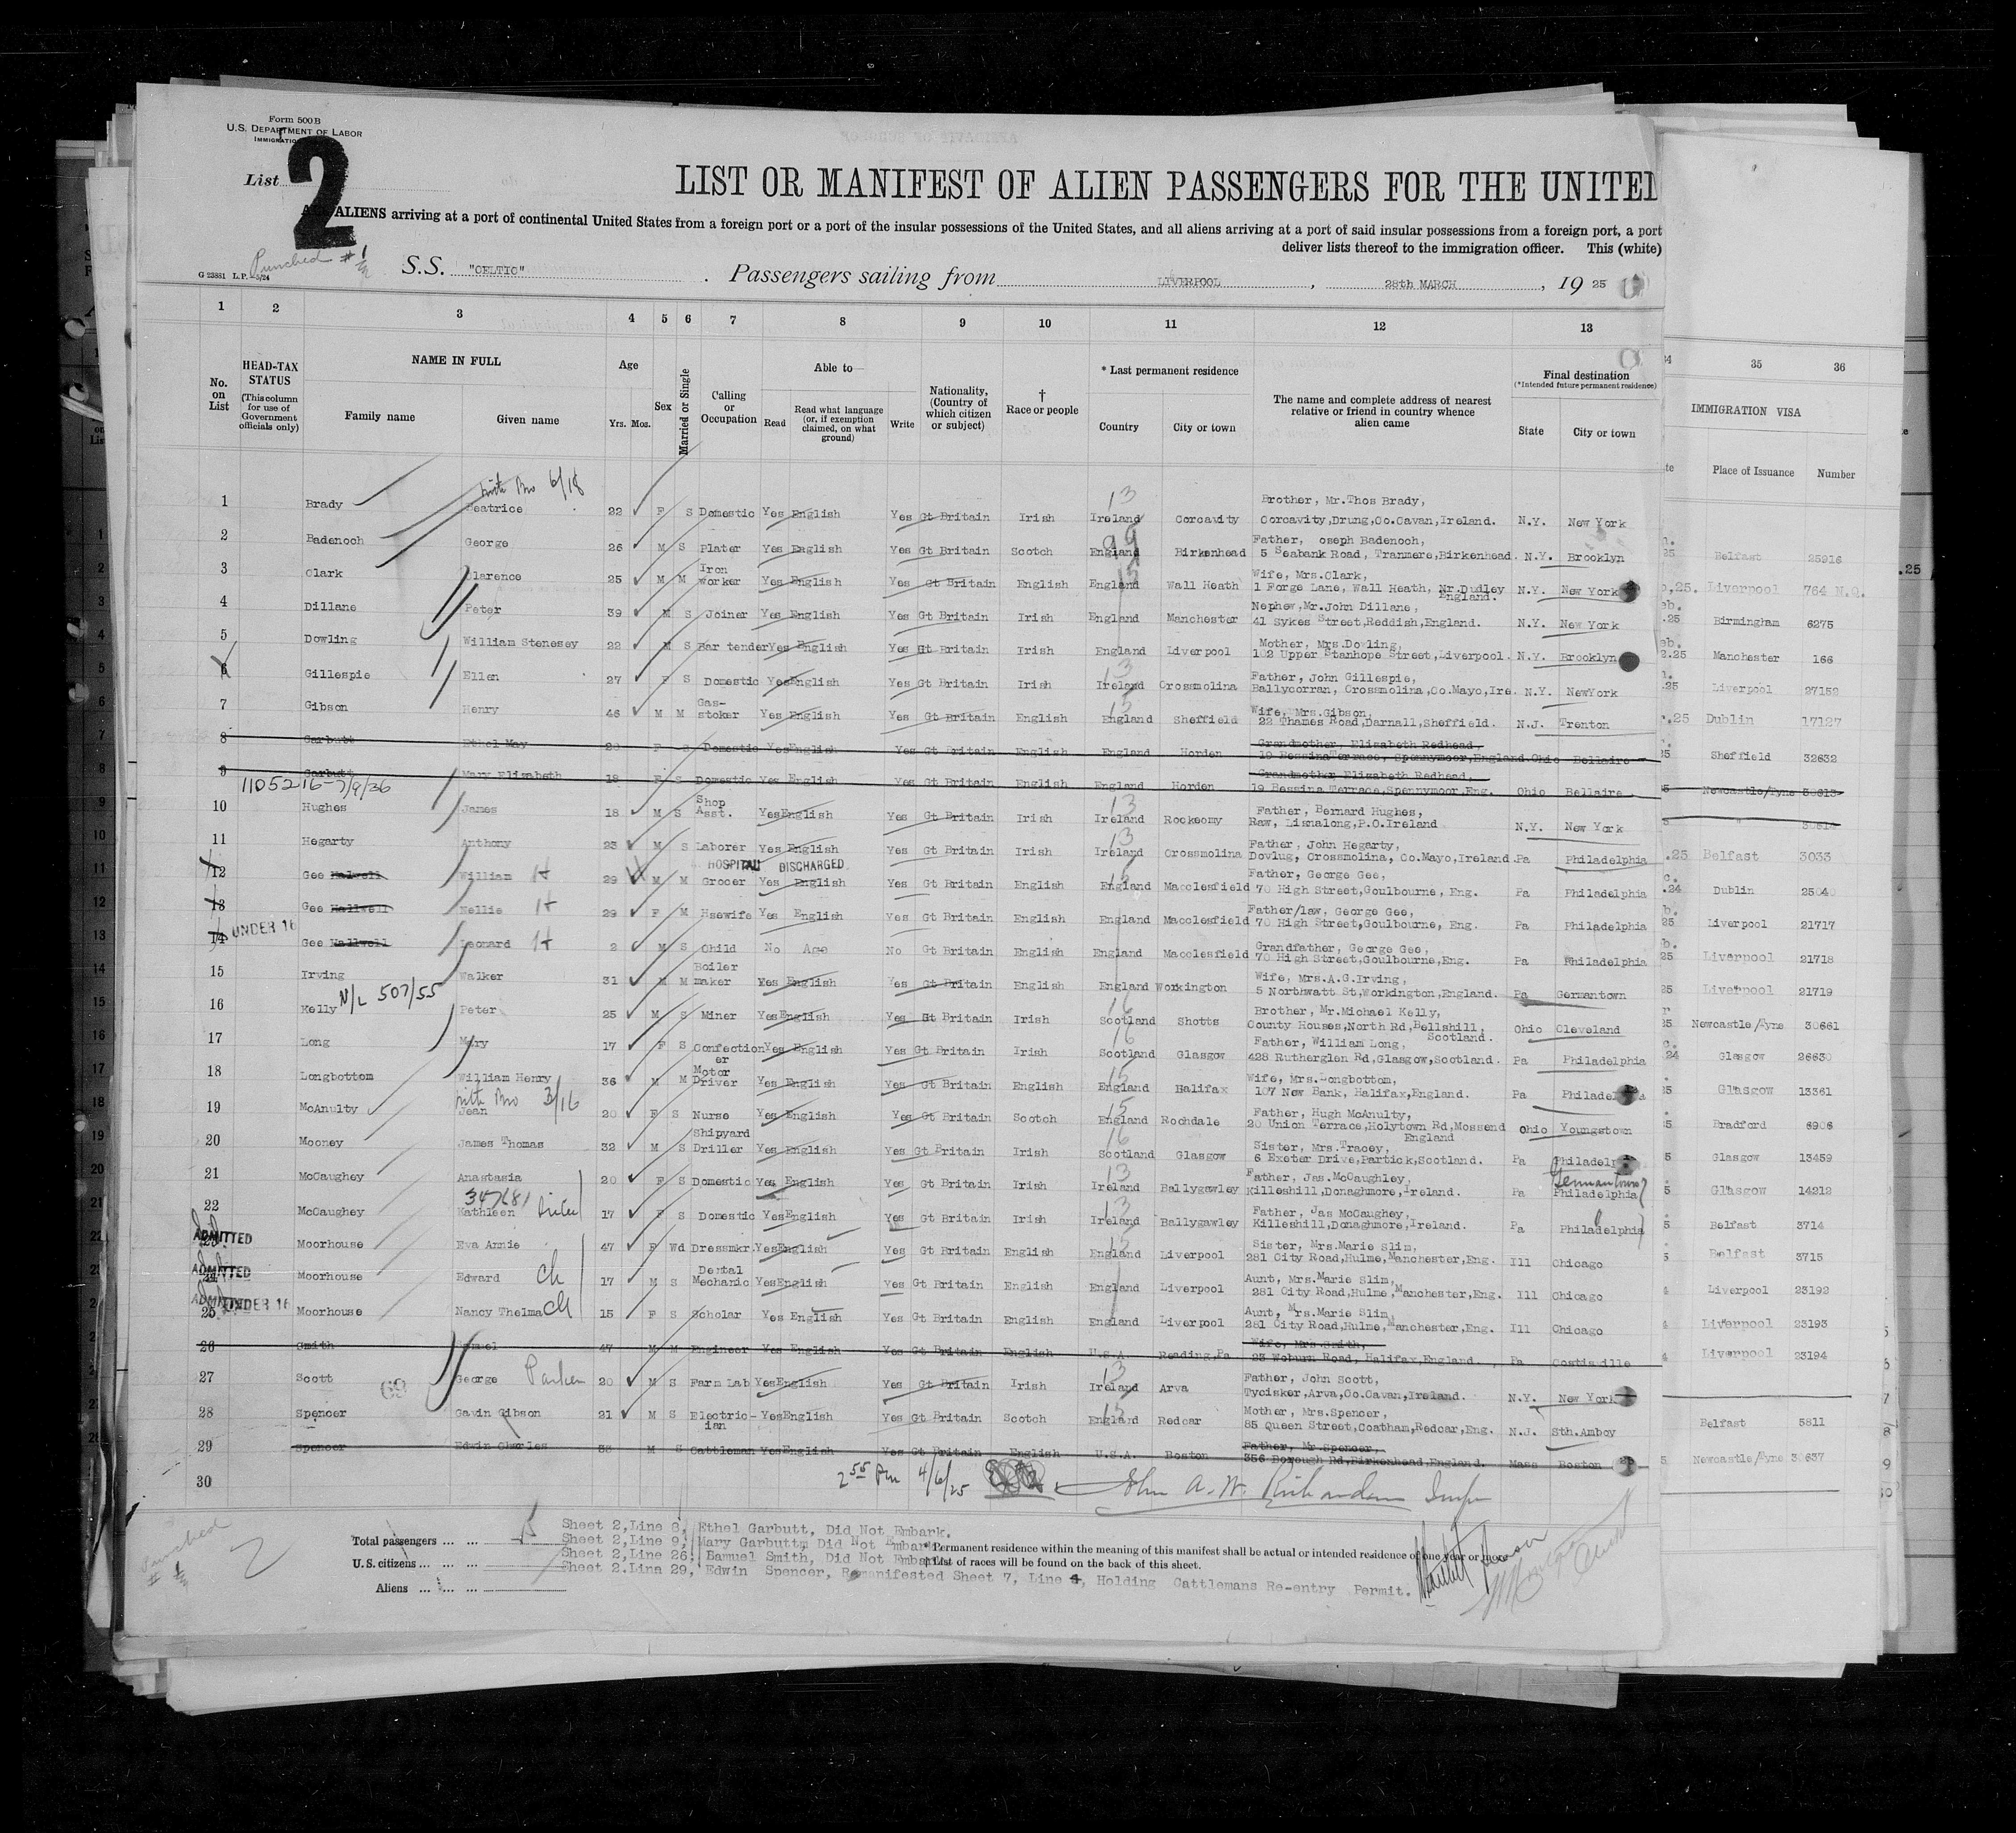 Form 500B
U.S. DEPARTMENT OF LABOR
List 2
LIST OR MANIFEST OF ALIEN PASSENGERS FOR THE UNITED
ALIENS arriving at a port of continental United States from a foreign port or a port of the insular possessions of the United States, and all aliens arriving at a port of said insular possessions from a foreign port, a port
deliver lists thereof to the immigration officer. This (white)
Punched #
G 23881 L.P.—5/24
S.S. "CELTIC" . Passengers sailing from LIVERPOOL , 28th MARCH , 19 25
1 2 3 4 5 6 7 8 9 10 11 12 13 35 36
No. on List
HEAD-TAX STATUS (This column for use of Government officials only)
NAME IN FULL Family name Given name
Age Yrs. Mos.
Sex
Married or Single
Calling or Occupation
Able to— Read Read what language (or, if exemption claimed, on what ground) Write
Nationality, (Country of which citizen or subject)
† Race or people
* Last permanent residence Country City or town
The name and complete address of nearest relative or friend in country whence alien came
Final destination (*Intended future permanent residence) State City or town
IMMIGRATION VISA Place of Issuance Number
1 Brady Beatrice 22 F S Domestic Yes English Yes Gt Britain Irish Ireland Corcavity Brother, Mr.Thos Brady, Corcavity,Drung,Co.Cavan,Ireland. N.Y. New York
2 Badenoch George 26 M S Plater Yes English Yes Gt Britain Scotch England Birkenhead Father, oseph Badenoch, 5 Seabank Road, Tranmere,Birkenhead. N.Y. Brooklyn Belfast 25916
3 Clark Clarence 25 M M Iron worker Yes English Yes Gt Britain English England Wall Heath Wife, Mrs.Clark, 1 Forge Lane, Wall Heath, Nr.Dudley England. N.Y. New York Liverpool 764 N.Q.
4 Dillane Peter 39 M S Joiner Yes English Yes Gt Britain Irish England Manchester Nephew,Mr.John Dillane, 41 Sykes Street,Reddish,England. N.Y. New York Birmingham 6275
5 Dowling William Stenesey 22 M S Bar tender Yes English Yes Gt Britain Irish England Liverpool Mother, Mrs.Dowling, 102 Upper Stanhope Street,Liverpool. N.Y. Brooklyn Manchester 166
6 Gillespie Ellen 27 F S Domestic Yes English Yes Gt Britain Irish Ireland Crossmolina Father, John Gillespie, Ballycorran, Crossmolina,Co.Mayo,Ire. N.Y. NewYork Liverpool 27152
7 Gibson Henry 46 M M Gas-stoker Yes English Yes Gt Britain English England Sheffield Wife, Mrs.Gibson, 22 Thames Road,Darnall,Sheffield. N.J. Trenton Dublin 17127
8 Garbutt Ethel May F S Domestic Yes English Yes Gt Britain English England Horden Grandmother, Elizabeth Redhead. 19 Bessina Terrace, Spennymoor,England. Ohio Bellaire Sheffield 32632
9 Garbutt Mary Elizabeth 18 F S Domestic Yes English Yes Gt Britain English England Horden Grandmother Elizabeth Redhead, 19 Bessina Terrace,Spennymoor,Eng. Ohio Bellaire Newcastle/Tyne 30613
1105216-7/9/36
10 Hughes James 18 M S Shop Asst. Yes English Yes Gt Britain Irish Ireland Rockcomy Father, Bernard Hughes, Raw, Lisnalong,P.O.Ireland N.Y. New York
11 Hegarty Anthony 23 M S Laborer Yes English Yes Gt Britain Irish Ireland Crossmolina Father, John Hegarty, Dovlug, Crossmolina, Co.Mayo,Ireland. Pa Philadelphia Belfast 3033
HOSPITAL DISCHARGED
12 Gee William H 29 M M Grocer Yes English Yes Gt Britain English England Macclesfield Father, George Gee, 70 High Street,Goulbourne, Eng. Pa Philadelphia Dublin 25040
13 Gee Hallwell Nellie H 29 F M Hsewife Yes English Yes Gt Britain English England Macclesfield Father/law, George Gee, 70 High Street,Goulbourne, Eng. Pa Philadelphia Liverpool 21717
UNDER 16
14 Gee Hallwell Leonard H 2 M S Child No Age No Gt Britain English England Macclesfield Grandfather, George Gee, 70 High Street,Goulbourne,Eng. Pa Philadelphia Liverpool 21718
15 Irving Walker 31 M M Boiler maker Yes English Yes Gt Britain English England Workington Wife, Mrs.A.G.Irving, 5 Northwatt St,Workington,England. Pa Germantown Liverpool 21719
N/L 507/55
16 Kelly Peter 25 M S Miner Yes English Yes Gt Britain Irish Scotland Shotts Brother, Mr.Michael Kelly, County Houses,North Rd,Bellshill, Scotland. Ohio Cleveland Newcastle/Tyne 30661
17 Long Mary 17 F S Confectioner Yes English Yes Gt Britain Irish Scotland Glasgow Father, William Long, 428 Rutherglen Rd,Glasgow,Scotland. Pa Philadelphia Glasgow 26630
18 Longbottom William Henry 36 M M Motor Driver Yes English Yes Gt Britain English England Halifax Wife, Mrs.Longbottom, 107 New Bank, Halifax,England. Pa Philadel Glasgow 13361
19 McAnulty Jean 20 F S Nurse Yes English Yes Gt Britain Scotch England Rochdale Father, Hugh McAnulty, 20 Union Terrace,Holytown Rd,Mossend England Ohio Youngstown Bradford 6906
20 Mooney James Thomas 32 M S Shipyard Driller Yes English Yes Gt Britain Irish Scotland Glasgow Sister, Mrs.Tracey, 6 Exeter Drive,Partick,Scotland. Pa Philadelp Glasgow 13459
21 McCaughey Anastasia 20 F S Domestic Yes English Yes Gt Britain Irish Ireland Ballygawley Father, Jas.McCaughley, Killeshill,Donaghmore,Ireland. Pa Philadelphia Germantown Glasgow 14212
22 McCaughey Kathleen 17 F S Domestic Yes English Yes Gt Britain Irish Ireland Ballygawley Father, Jas McCaughey, Killeshill,Donaghmore,Ireland. Pa Philadelphia Belfast 3714
ADMITTED
23 Moorhouse Eva Annie 47 F Wd Dressmkr. Yes English Yes Gt Britain English England Liverpool Sister, Mrs.Marie Slim, 281 City Road,Hulme,Manchester,Eng. Ill Chicago Belfast 3715
ADMITTED
24 Moorhouse Edward Ch 17 M S Dental Mechanic Yes English Yes Gt Britain English England Liverpool Aunt, Mrs.Marie Slim, 281 City Road,Hulme,Manchester,Eng. Ill Chicago Liverpool 23192
ADMITTED UNDER 16
25 Moorhouse Nancy Thelma Ch 15 F S Scholar Yes English Yes Gt Britain English England Liverpool Aunt, Mrs.Marie Slim, 281 City Road,Hulme,Manchester,Eng. Ill Chicago Liverpool 23193
26 Smith Samuel 47 M M Engineer Yes English Yes Gt Britain English U.S.A. Reading,Pa Wife, Mrs.Smith, 23 Woburn Road, Halifax,England. Pa Costisville Liverpool 23194
27 Scott George Parker 20 M S Farm Lab Yes English Yes Gt Britain Irish Ireland Arva Father, John Scott, Tycisker,Arva,Co.Cavan,Ireland. N.Y. New York
28 Spencer Gavin Gibson 21 M S Electric-ian Yes English Yes Gt Britain Scotch England Redcar Mother, Mrs.Spencer, 85 Queen Street,Coatham,Redcar,Eng. N.J. Sth.Amboy Belfast 5811
29 Spencer Edwin Charles 38 M S Cattleman Yes English Yes Gt Britain English U.S.A. Boston Father, Mr.Spencer, 356 Borough Rd,Birkenhead,England. Mass Boston Newcastle/Tyne 30637
30 2 55 Pm 4/6/25 John A. W. Richardson Insp
Sheet 2,Line 8, Ethel Garbutt, Did Not Embark.
Sheet 2,Line 9, Mary Garbuttm Did Not Embark
Sheet 2,Line 26, Samuel Smith, Did Not Embark
Sheet 2.Lina 29, Edwin Spencer, Remanifested Sheet 7, Line 4, Holding Cattlemans Re-entry Permit.
Total passengers
U.S. citizens
Aliens
* Permanent residence within the meaning of this manifest shall be actual or intended residence of one year or more.
† List of races will be found on the back of this sheet.
Punched
2